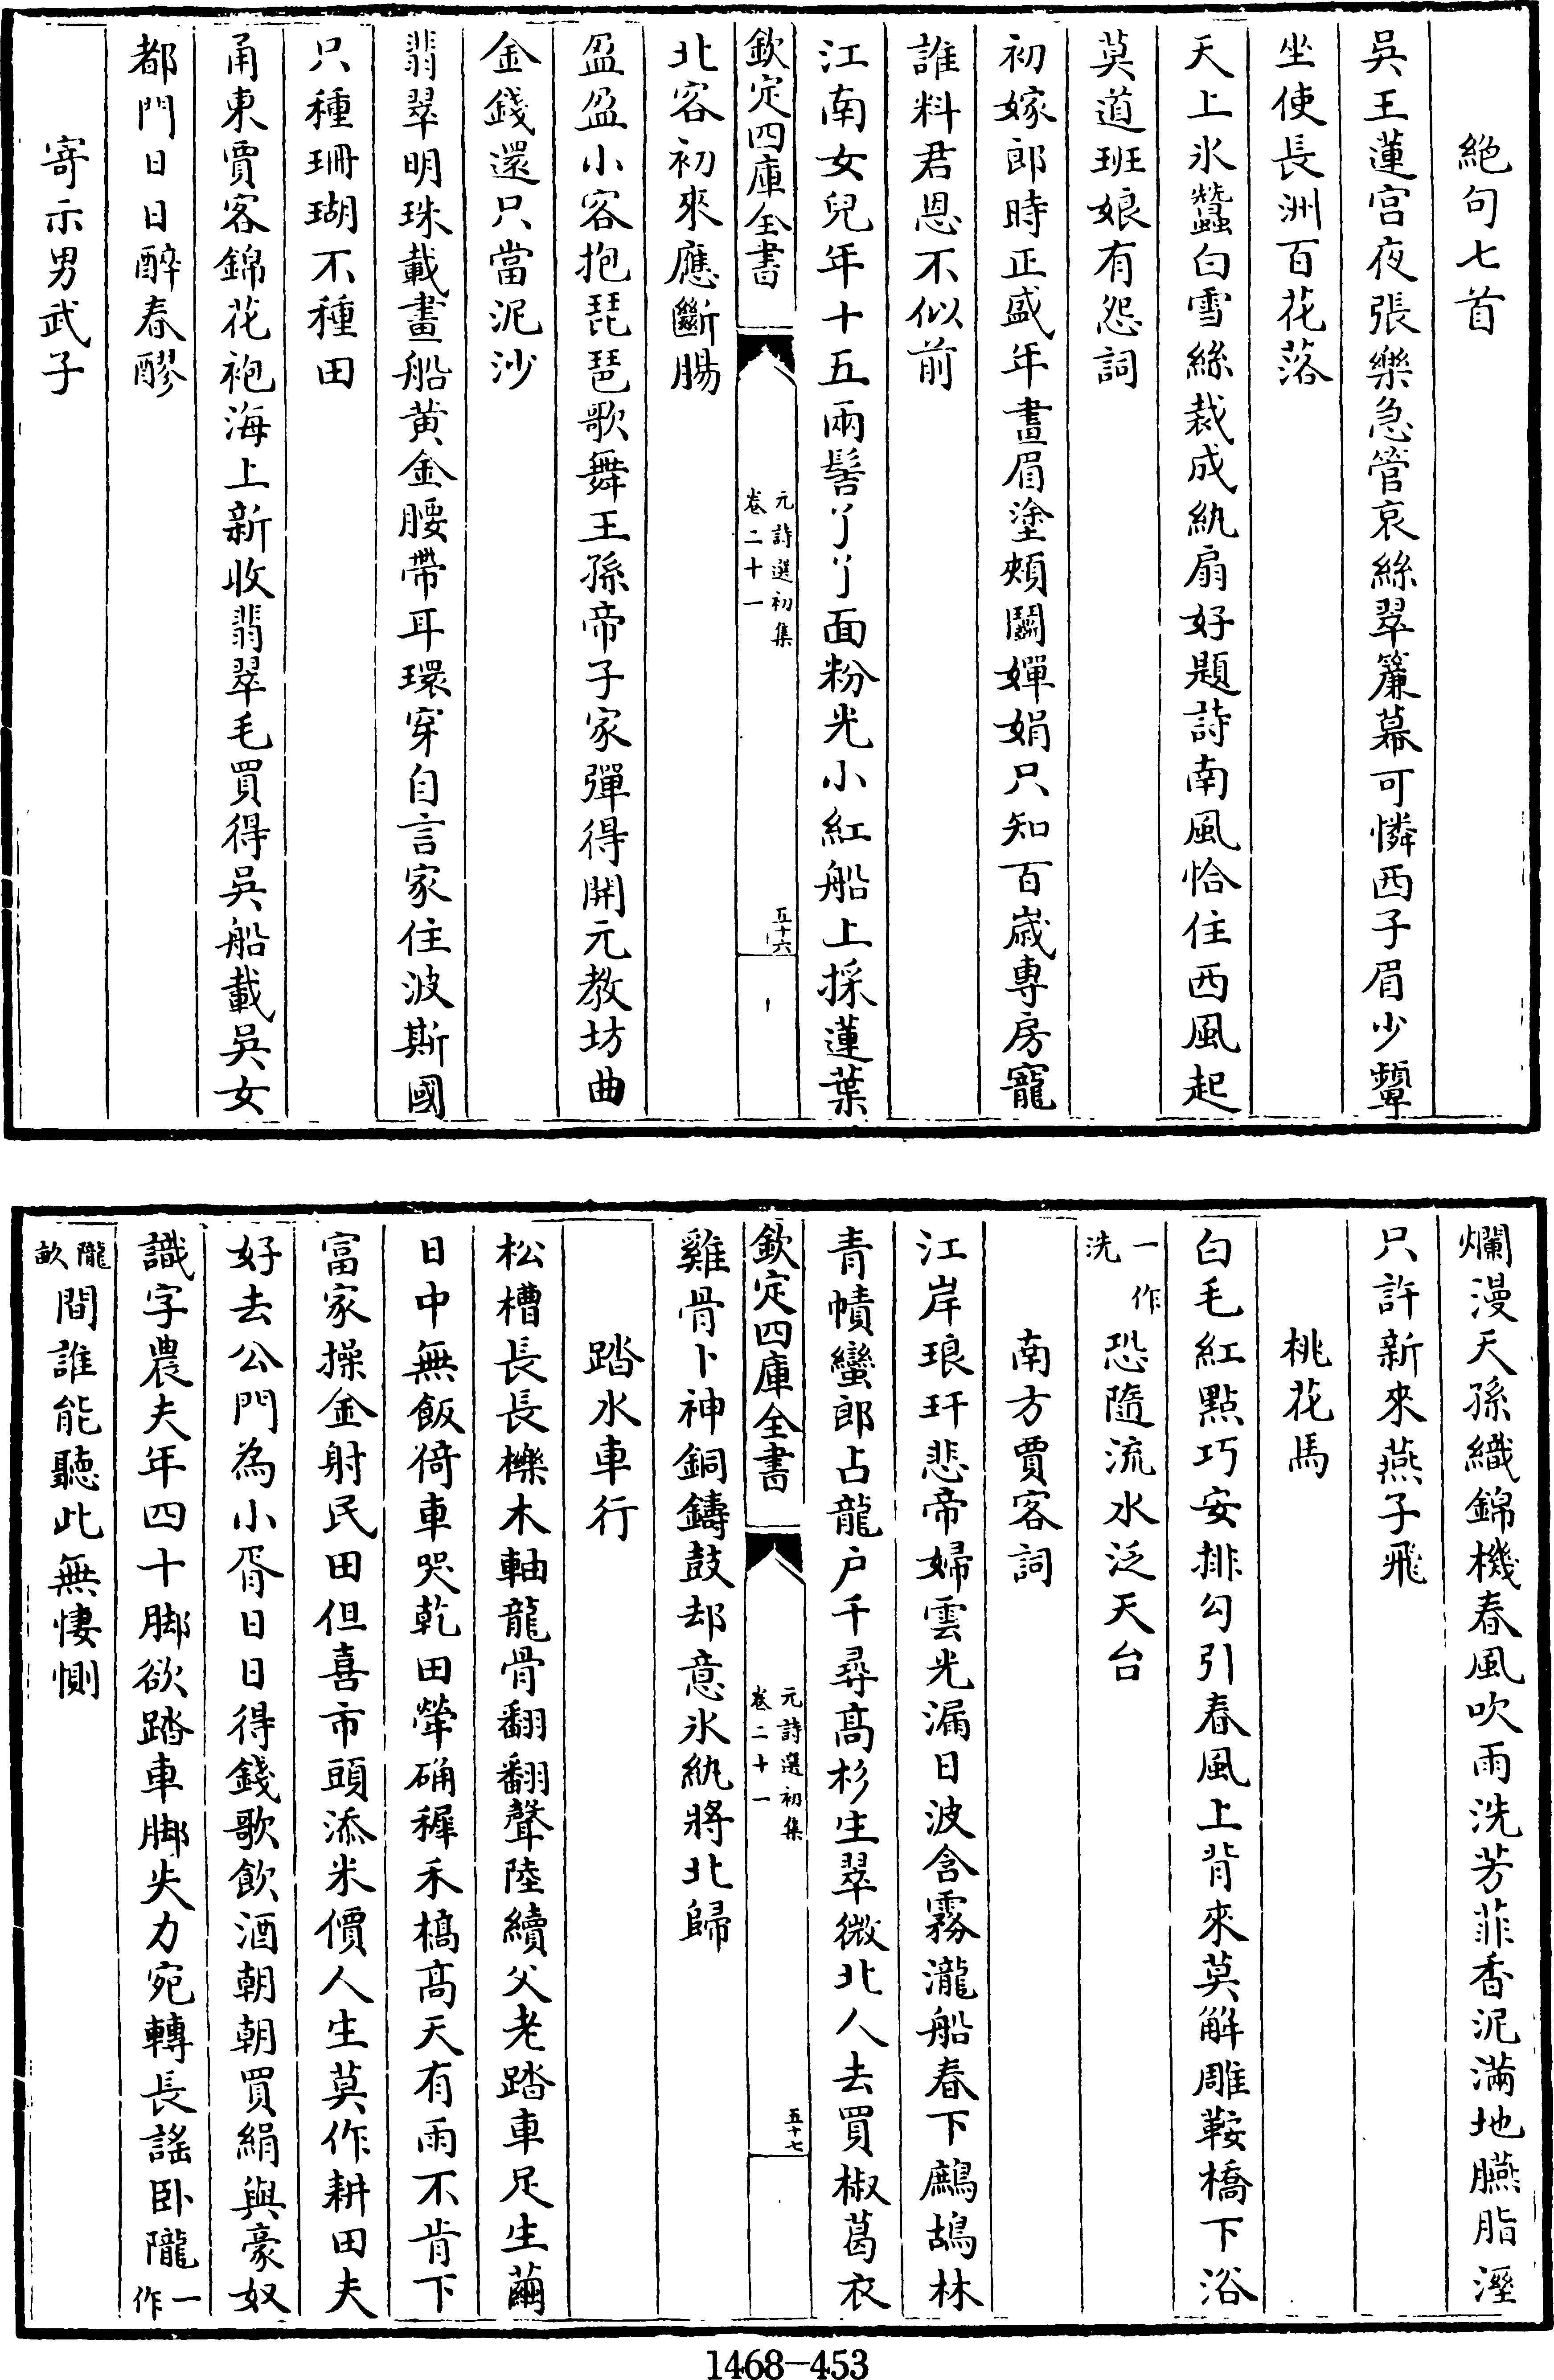 絶句七首
吳王蓮宫夜張樂急管哀絲翠簾幕可憐西子眉少顰
坐使長洲百花落
天上氷蠶白雪絲裁成紈扇好題詩南風恰住西風起
莫道班娘有怨詞
初嫁郎時正盛年畫眉塗頰鬭嬋娟只知百歳專房寵
誰料君恩不似前
江南女兒年十五兩髻丫丫面粉光小紅船上採蓮葉
欽定四庫全書
元詩選初集
卷二十一
五十六
北客初來應斷腸
盈盈小客抱琵琶歌舞王孫帝子家彈得開元教坊曲
金錢還只當泥沙
翡翠明珠載畫船黄金腰帶耳環穿自言家住波斯國
只種珊瑚不種田
甬東賈客錦花袍海上新收翡翠毛買得吳船載吳女
都門日日醉春醪
寄示男武子
爛漫天孫織錦機春風吹雨洗芳菲香泥滿地臙脂溼
只許新來燕子飛
桃花馬
白毛紅點巧安排勾引春風上背來莫解雕鞍橋下浴
一作
洗
恐隨流水泛天台
南方賈客詞
江岸琅玕悲帝婦雲光漏日波含霧瀧船春下鷓鴣林
青幘蠻郎占龍户千尋高杉生翠微北人去買椒葛衣
欽定四庫全書
元詩選初集
卷二十一
五十七
雞骨卜神銅鑄鼓却意氷紈將北歸
踏水車行
松槽長長櫟木軸龍骨翻翻聲陸續父老踏車足生繭
日中無飯倚車哭乾田犖确穉禾槁高天有雨不肯下
富家操金射民田但喜市頭添米價人生莫作耕田夫
好去公門為小胥日日得錢歌飲酒朝朝買絹與豪奴
識字農夫年四十脚欲踏車脚失力宛轉長謡卧隴
一
作
隴
畝
間誰能聽此無悽惻
1468-453